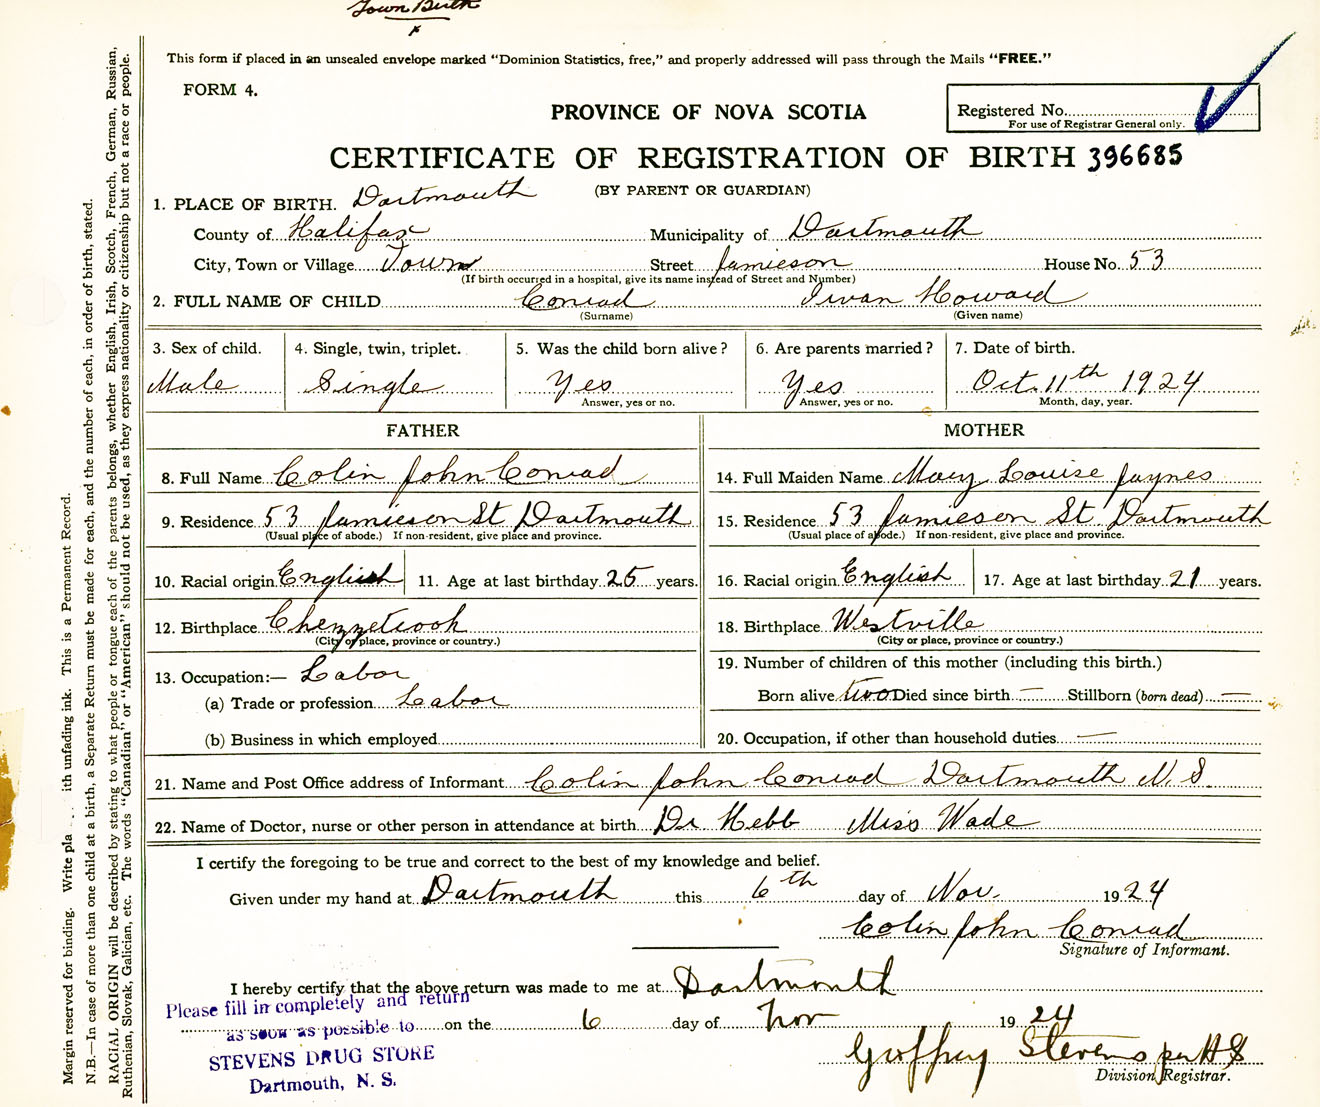 Town Birth
This form if placed in an unsealed envelope marked "Dominion Statistics, free," and properly addressed will pass through the Mails "FREE."
FORM 4.
PROVINCE OF NOVA SCOTIA
Registered No.
For use of Registrar General only.
CERTIFICATE OF REGISTRATION OF BIRTH 396685
(BY PARENT OR GUARDIAN)
1. PLACE OF BIRTH. Dartmouth
County of Halifax Municipality of Dartmouth
City, Town or Village Town Street Jamieson House No. 53
(If birth occurred in a hospital, give its name instead of Street and Number)
2. FULL NAME OF CHILD Conrad Ivan Howard
(Surname) (Given name)
3. Sex of child. 4. Single, twin, triplet. 5. Was the child born alive? 6. Are parents married? 7. Date of birth.
Male Single Yes Yes Oct. 11th 1924
Answer, yes or no. Answer, yes or no. Month, day, year.
FATHER MOTHER
8. Full Name Colin John Conrad 14. Full Maiden Name Mary Louise Jaynes
9. Residence 53 Jamieson St Dartmouth 15. Residence 53 Jamieson St. Dartmouth
(Usual place of abode.) If non-resident, give place and province. (Usual place of abode.) If non-resident, give place and province.
10. Racial origin English 11. Age at last birthday 25 years. 16. Racial origin English 17. Age at last birthday 21 years.
12. Birthplace Chezzetcook 18. Birthplace Westville
(City or place, province or country.) (City or place, province or country.)
13. Occupation:— Labor 19. Number of children of this mother (including this birth.)
(a) Trade or profession Labor Born alive two Died since birth — Stillborn (born dead) —
(b) Business in which employed 20. Occupation, if other than household duties —
21. Name and Post Office address of Informant Colin John Conrad Dartmouth N. S.
22. Name of Doctor, nurse or other person in attendance at birth Dr Hebb Miss Wade
I certify the foregoing to be true and correct to the best of my knowledge and belief.
Given under my hand at Dartmouth this 6th day of Nov. 1924
Colin John Conrad
Signature of Informant.
I hereby certify that the above return was made to me at Dartmouth
on the 6 day of Nov 1924
Geoffrey Stevens per H S
Division Registrar.
Please fill in completely and return
as soon as possible to
STEVENS DRUG STORE
Dartmouth, N. S.
Margin reserved for binding. Write pla ith unfading ink. This is a Permanent Record.
N.B.—In case of more than one child at a birth, a Separate Return must be made for each, and the number of each, in order of birth, stated.
RACIAL ORIGIN will be described by stating to what people or tongue each of the parents belongs, whether English, Irish, Scotch, French, German, Russian,
Ruthenian, Slovak, Galician, etc. The words "Canadian" or "American" should not be used, as they express nationality or citizenship but not a race or people.